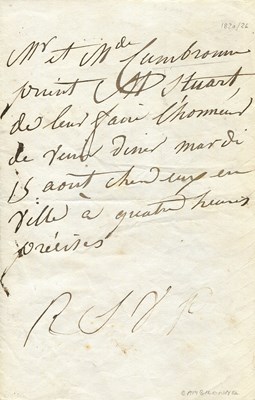 Mr et Mde Cambronne
prient Mr Stuart
de leur faire l'honneur
de venir diner mardi
15 aout chez eux en
ville à quatre heures
précises
R S V P
CAMBRONNE